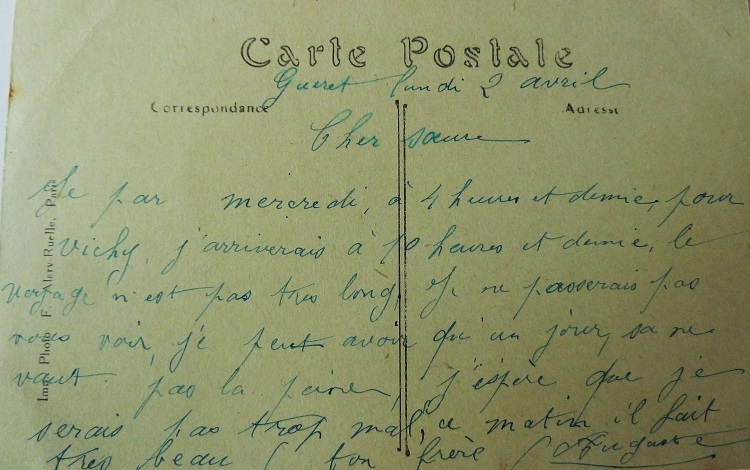 Carte Postale
Gueret lundi 2 avril
Correspondance
Adresse
Cher sœure
Je par mercredi, à 4 heures et demie, pour
Vichy, j'arriverais à 10 heures et demie, le
voyage n'est pas tres long, Je ne passerais pas
vous voir, je peut avoir qu'un jour, sa ne
vaut pas la peine, j'éspère que je
serais pas trop mal, ce matin il fait
tres beau (ton frère (Auguste
Imp. Photo F. Alery Ruelle, Paris